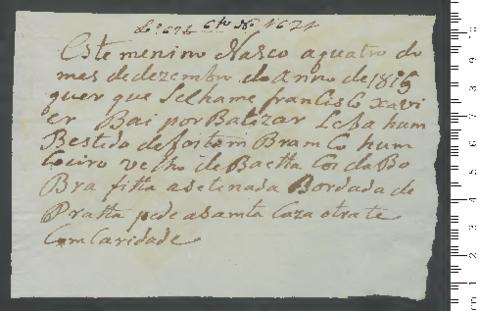 Lº 692 6to Nº 1621
Este menino Nasco aquatro do
mes de dezembro do Anno de 1816
quer que Selhame francisco xavi
er Bai por Baltizar Leba hum
Bestido de foitom Bramco hum
Coeiro velho de Baetta Cor da Bo
Bra fitta asetenada Bordada de
Pratta pede asamta Caza otrate
Com Caridade